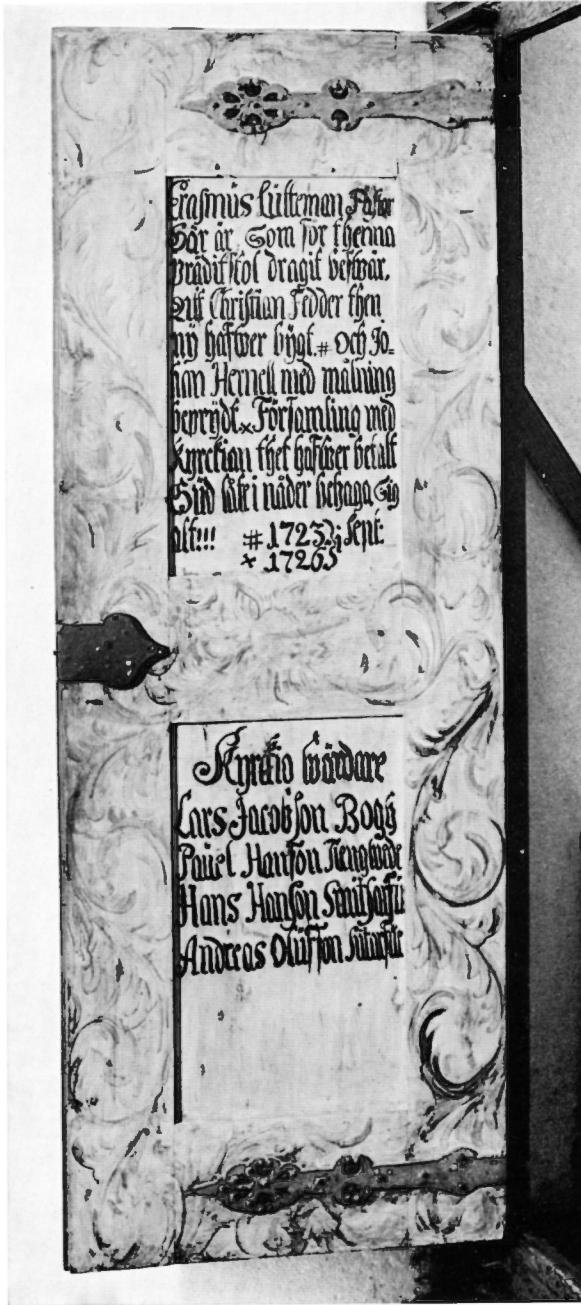 Erasmus Lütteman Pastor
Här är Som för thenna
Prädikstol dragit beswär.
Utaf Christian Fedder then
ny hafwer bÿgt. # Och Jo=
han Hernell med målning
beprÿdt × Församling med
Kyrckian thet hafwer betalt
Gud låte i nåder behaga Sig
alt!!! # 1723 Sept:
× 1726
Kyrckio wärdare
Lars Jacobson Bogÿ
Pauel Hanson
Hans Hanson
Andreas Olüfson